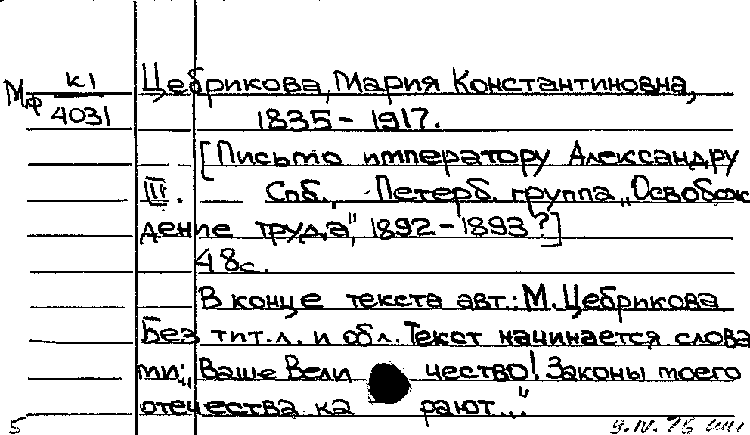 Мф К1/4031 Цебрикова, Мария Константиновна,
1835 – 1917.
[Письмо императору Александру
III. Спб., Петерб. группа „Освобож
дение труда", 1892 – 1893?]
48с.
В конце текста авт.: М. Цебрикова
Без тит. л. и обл. Текст начинается слова
ми: „Ваше Вели чество! Законы моего
отечества ка рают..."
5 9.IV.75